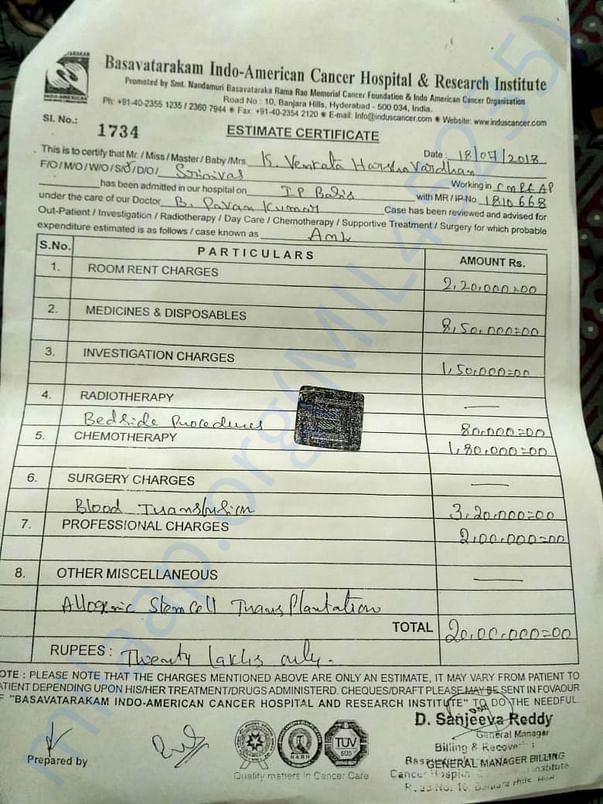 Basavatarakam Indo-American Cancer Hospital & Research Institute
Promoted by Smt. Nandamuri Basavataraka Rama Rao Memorial Cancer Foundation & Indo American Cancer Organisation
Road No : 10, Banjara Hills, Hyderabad - 500 034, India.
Ph: +91-40-2355 1235 / 2360 7944 ✷ Fax: +91-40-2354 2120 ✷ E-mail: Info@induscancer.com ✷ Website: www.induscancer.com
INDO-AMERICAN
Sl. No.: 1734
ESTIMATE CERTIFICATE
Date : 18/07/2018
This is to certify that Mr. / Miss / Master / Baby /Mrs. K. Venkata Harsha Vardhan
F/O / M/O / W/O / S/O / D/O / Srinivas Working in CMRF AP
has been admitted in our hospital on IP Basis with MR / IP No. 1810668
under the care of our Doctor B. Pavan Kumar Case has been reviewed and advised for
Out-Patient / Investigation / Radiotherapy / Day Care / Chemotherapy / Supportive Treatment / Surgery for which probable
expenditure estimated is as follows / case known as AML
S.No. PARTICULARS AMOUNT Rs.
1. ROOM RENT CHARGES 2,20,000=00
2. MEDICINES & DISPOSABLES 8,50,000=00
3. INVESTIGATION CHARGES 1,50,000=00
4. RADIOTHERAPY —
Bedside Procedures 80,000=00
5. CHEMOTHERAPY 1,80,000=00
6. SURGERY CHARGES —
Blood Transfusion 3,20,000=00
7. PROFESSIONAL CHARGES 2,00,000=00
8. OTHER MISCELLANEOUS —
Allogenic Stemcell TransPlantation
TOTAL 20,00,000=00
RUPEES : Twenty lakhs only.
OTE : PLEASE NOTE THAT THE CHARGES MENTIONED ABOVE ARE ONLY AN ESTIMATE, IT MAY VARY FROM PATIENT TO
ATIENT DEPENDING UPON HIS/HER TREATMENT/DRUGS ADMINISTERD. CHEQUES/DRAFT PLEASE MAY BE SENT IN FOVAOUR
F "BASAVATARAKAM INDO-AMERICAN CANCER HOSPITAL AND RESEARCH INSTITUTE" TO DO THE NEEDFUL.
D. Sanjeeva Reddy
General Manager
Billing & Recove
GENERAL MANAGER BILLING
Cancer Hospital Institute
Prepared by
NABH
TUV
SUD
Quality matters in Cancer Care
milaap.org(MIL45215)